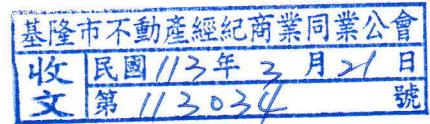 基隆市不動產經紀商業同業公會
收文
民國113年3月21日
第113034號